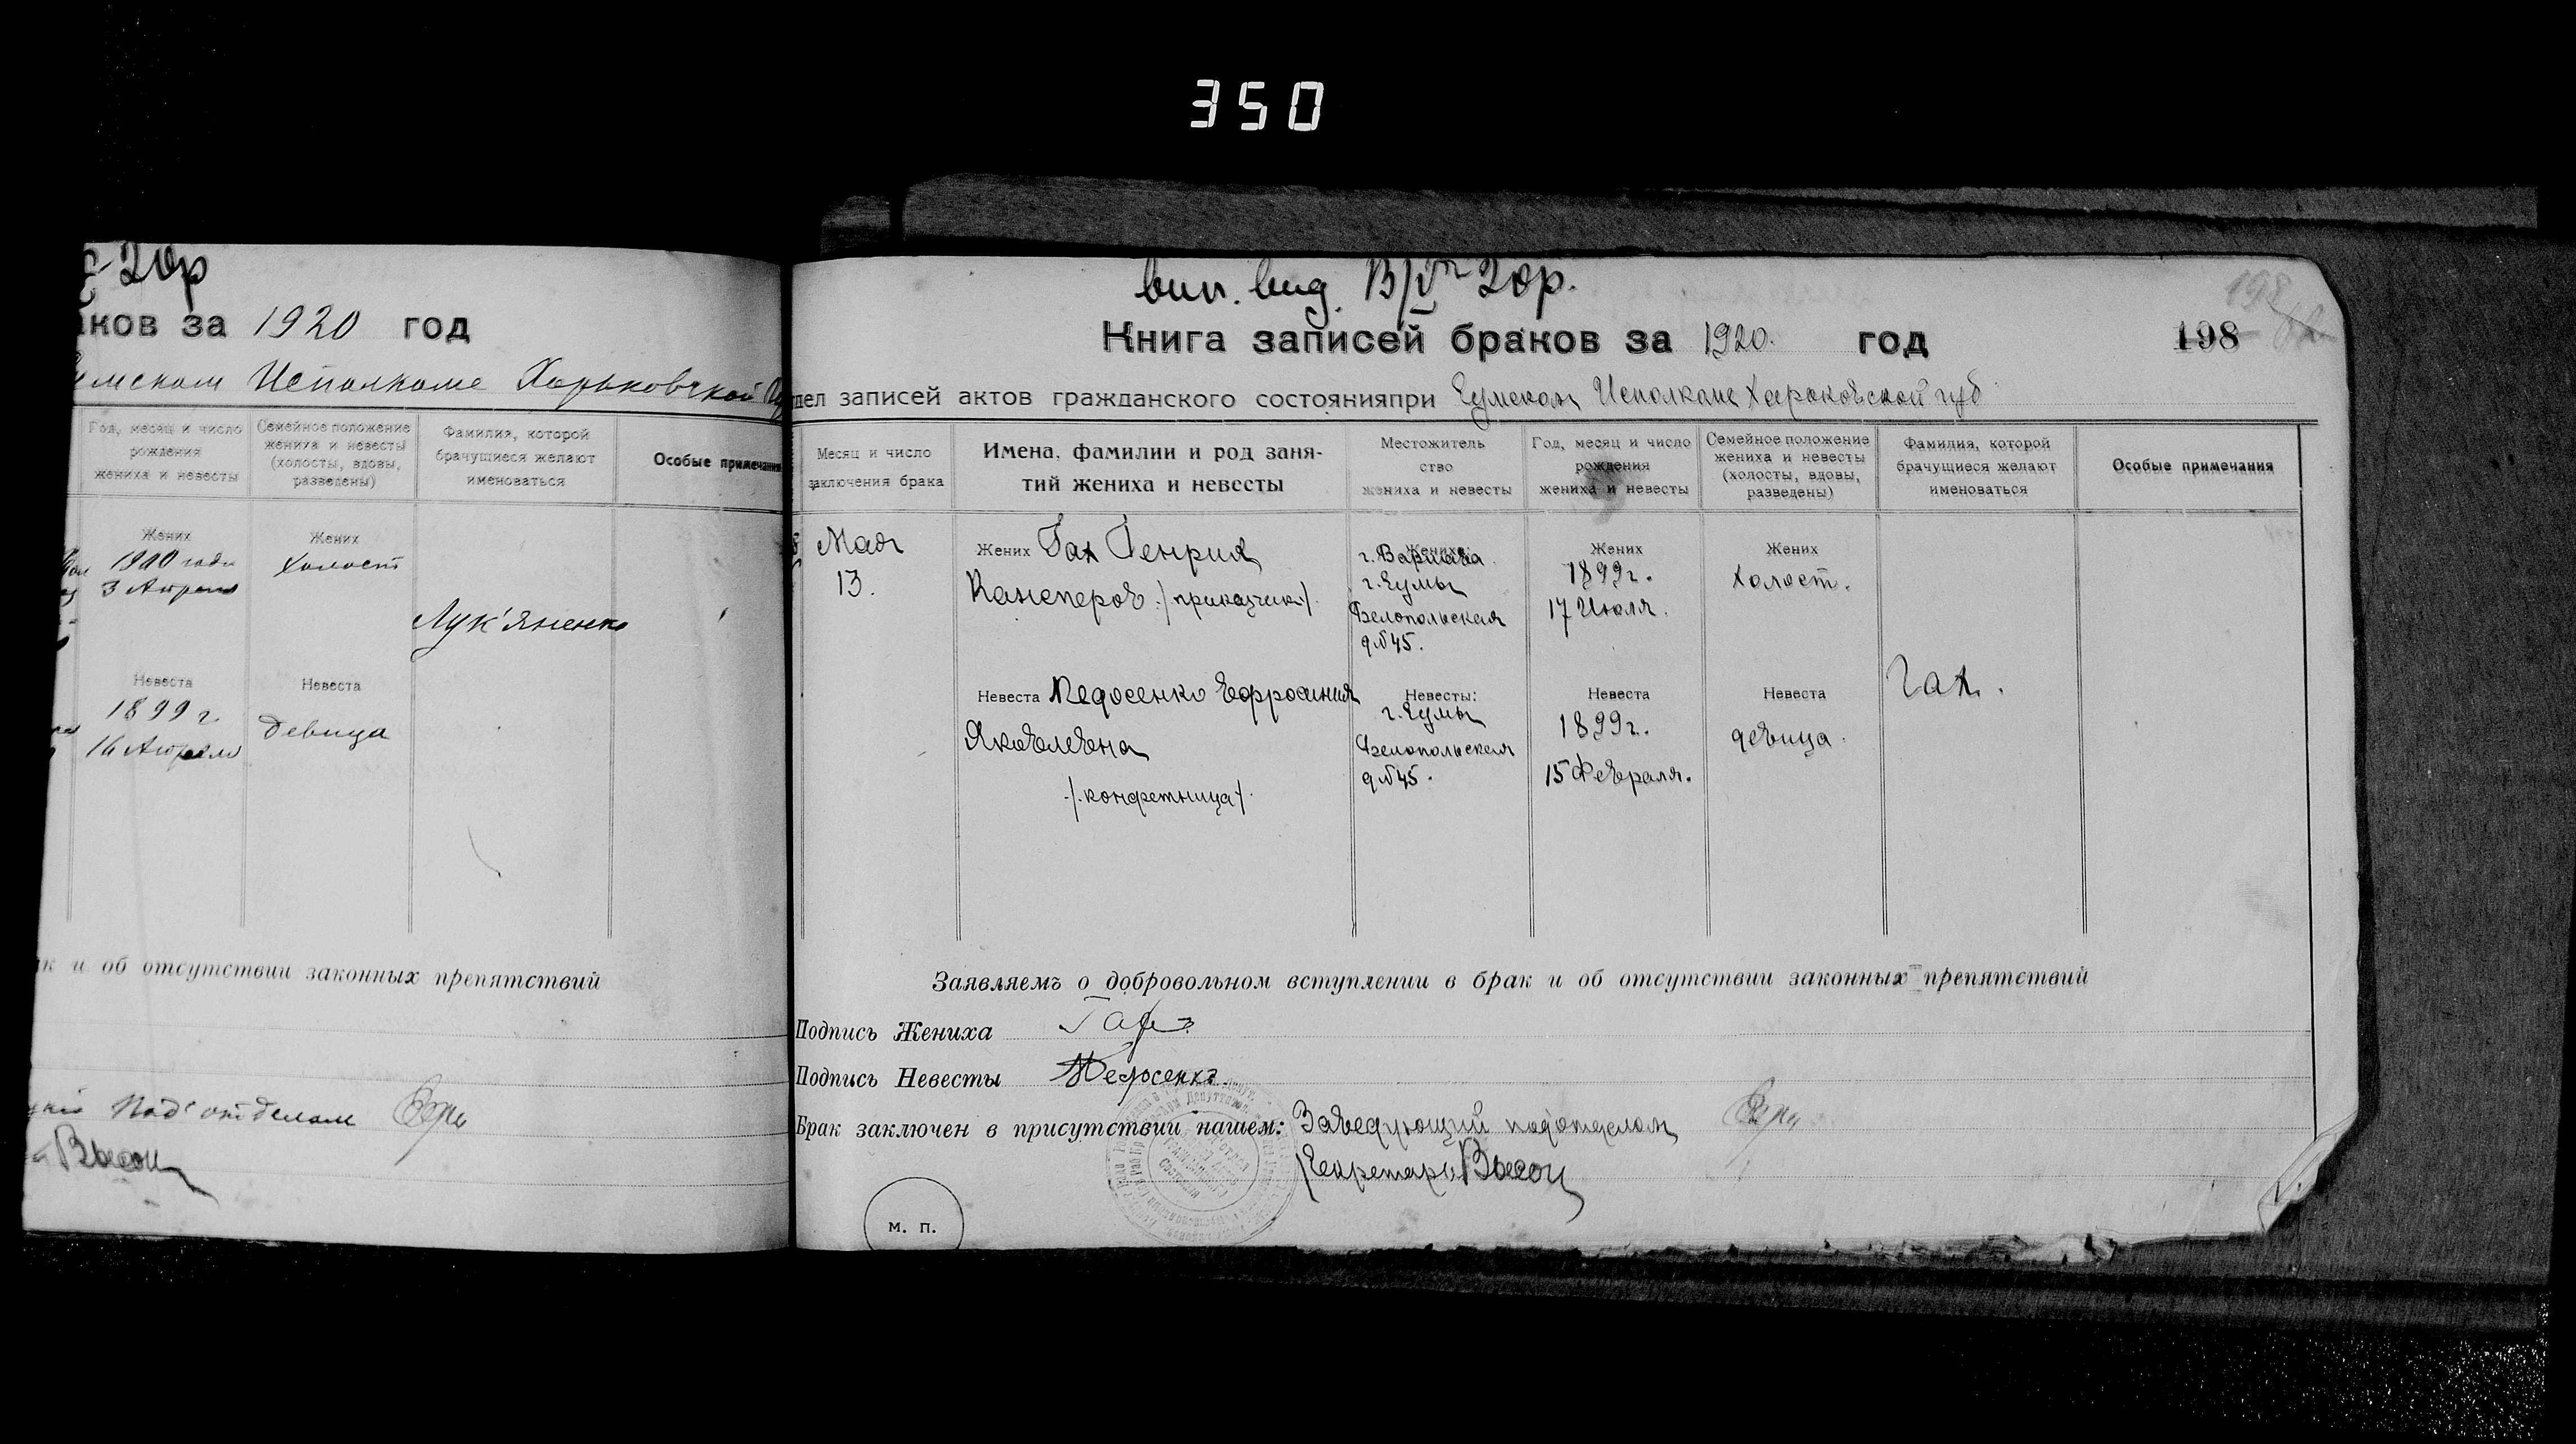 350
20р
ков за 1920 год
Исполкоме Харьковской
Год, месяц и число рождения жениха и невесты
Семейное положение жениха и невесты (холосты, вдовы, разведены)
Фамилия, которой брачущиеся желают именоваться
Особые примечания
Жених
1900 года
3 Апреля
Жених
холост
Лук'яненко
Невеста
1899 г.
16 Апреля
Невеста
девица
к и об отсутствии законных препятствий
Под'отделом
вип. вид. 20р.
Книга записей браков за 1920. год
198
дел записей актов гражданского состоянияпри Сумском Исполкоме Харьковской губ
Месяц и число заключения брака
Имена, фамилии и род занятий жениха и невесты
Местожительство жениха и невесты
Год, месяц и число рождения жениха и невесты
Семейное положение жениха и невесты (холосты, вдовы, разведены)
Фамилия, которой брачущиеся желают именоваться
Особые примечания
Мая
13.
Жених Гах Генрих
/приказчик/.
Жениха:
г. Варшава
г. Сумы
Белопольская
д №45.
Жених
1899г.
17 Июля.
Жених
холост.
Невеста Федосенко Ефросиния
Яковлевна
/.конфетница/.
Невесты:
г. Сумы
Белопольская
д №45.
Невеста
1899г.
15 Февраля.
Невеста
девица.
Гах.
Заявляемъ о добровольном вступлении в брак и об отсутствии законных препятствий
Подпись Жениха Гах
Подпись Невесты Федосенко
Брак заключен в присутствии нашем: Заведующий подотделом
Секретарь
м. п.